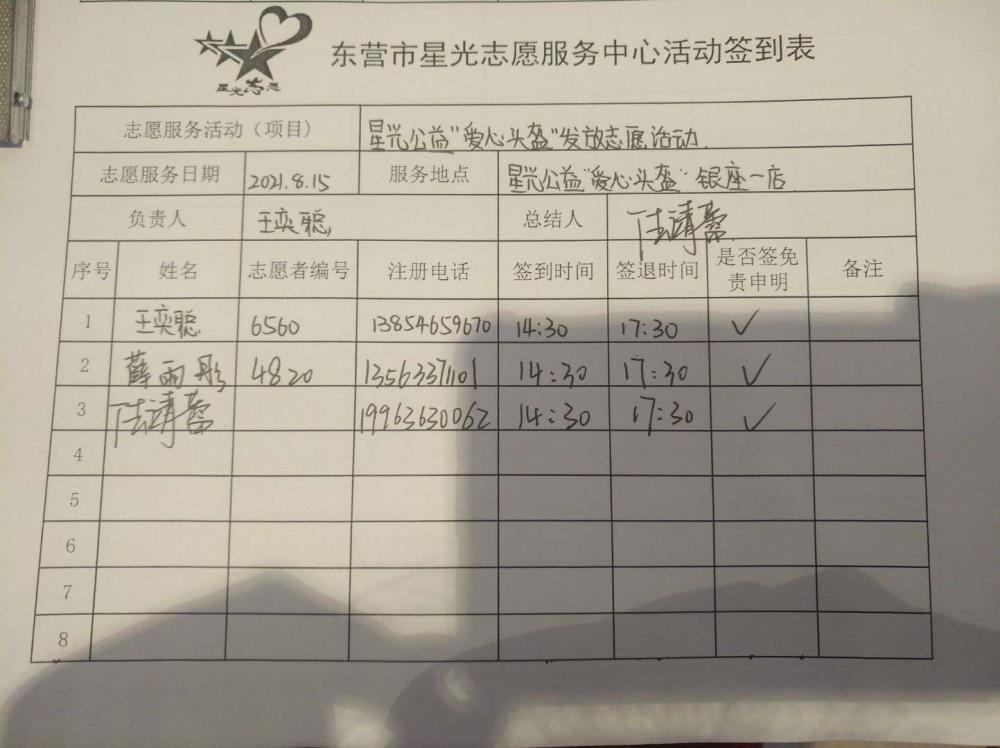 星光志愿
东营市星光志愿服务中心活动签到表
志愿服务活动（项目） 星光公益"爱心头盔"发放志愿活动.
志愿服务日期 2021.8.15 服务地点 星光公益"爱心头盔" 银座一店
负责人 王奕聪 总结人
序号 姓名 志愿者编号 注册电话 签到时间 签退时间 是否签免责申明 备注
1 王奕聪 6560 13854659670 14:30 17:30 ✓
2 薛雨彤 4820 13563371101 14:30 17:30 ✓
3 19963630062 14:30 17:30 ✓
4
5
6
7
8